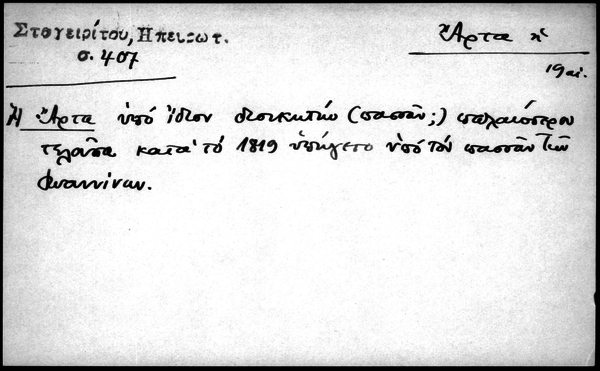 Σταγειρίτου, Ηπειρωτ.
σ. 407
Ἄρτα ἡ
19 αἰ.
Ἡ Ἄρτα ὑπό ἴδιον διοικητήν (πασᾶν;) παλαιότερον
τελοῦσα κατά τό 1819 ὑπήγετο ὑπό τόν πασᾶν τῶν
Ἰωαννίνων.